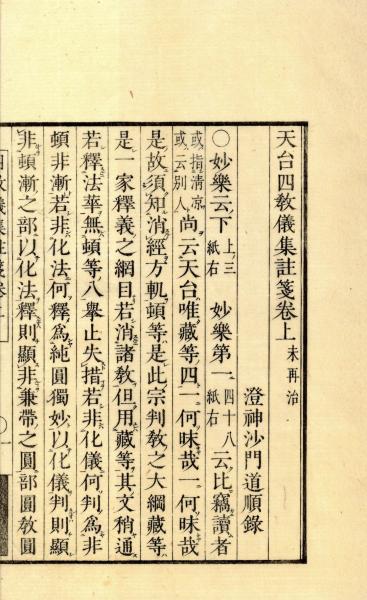 天台四敎儀集註箋卷上 未再治
澄神沙門道順錄
〇妙樂云下 上ノ三紙右 妙樂第一 四十八紙右 云比竊讀者
或指淸凉或云別人 尚云天台唯藏等四一何昧哉一何昧哉
是故須知消經方軌頓等是此宗判敎之大綱藏等
是一家釋義之網目若消諸敎但用藏等其文稍通
若釋法華無頓等八擧止失措若非化儀何判爲非
頓非漸若非化法何釋爲純圓獨妙以化儀判則顯
非頓漸之部以化法釋則顯非兼帶之圓部圓敎圓